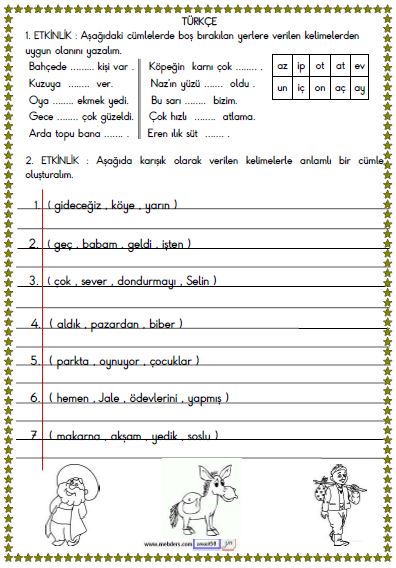 TÜRKÇE
1. ETKİNLİK : Aşağıdaki cümlelerde boş bırakılan yerlere verilen kelimelerden
uygun olanını yazalım.
Bahçede ......... kişi var . Köpeğin karnı çok ........ .
Kuzuya ....... ver. Naz'ın yüzü ....... oldu .
Oya ........ ekmek yedi. Bu sarı ........ bizim.
Gece ....... çok güzeldi. Çok hızlı ........ atlama.
Arda topu bana ....... . Eren ılık süt ....... .
az ip ot at ev
un iç on aç ay
2. ETKİNLİK : Aşağıda karışık olarak verilen kelimelerle anlamlı bir cümle
oluşturalım.
1. ( gideceğiz , köye , yarın )
2. ( geç , babam , geldi , işten )
3. ( çok , sever , dondurmayı , Selin )
4. ( aldık , pazardan , biber )
5. ( parkta , oynuyor , çocuklar )
6. ( hemen , Jale , ödevlerini , yapmış )
7. ( makarna , akşam , yedik , soslu )
www.mebders.com